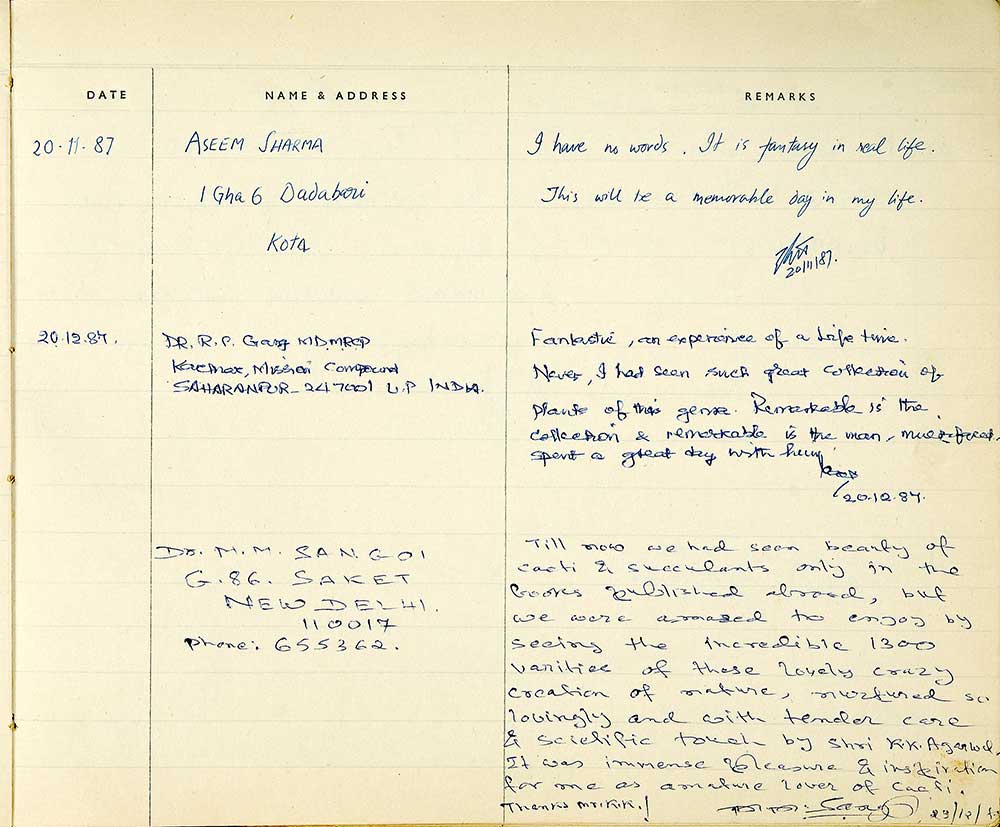 DATE NAME & ADDRESS REMARKS
20.11.87 ASEEM SHARMA I have no words. It is fantasy in real life.
1 Gha 6 Dadabari This will be a memorable day in my life.
KOTA
20/11/87.
20.12.87. DR. R. P. Garg MD MRCP Fantastic, an experience of a life time.
Mission Compound Never, I had seen such great collection of
SAHARANPUR - 247001 U.P INDIA. plants of this genre. Remarkable is the
collection & remarkable is the man,
spent a great day with him
20.12.87.
Dr. M. M. SANGOI Till now we had seen beauty of
G. 86. SAKET cacti & succulants only in the
NEW DELHI. books published abroad, but
110017 we were amazed to enjoy by
phone: 655362. seeing the incredible 1300
varities of these lovely crazy
creation of nature, nurtured so
lovingly and with tender care
& scietific touch by Shri K.K. Agarwal.
It was immense pleasure & inspiration
for me as amature lover of cacti.
Thanks Mr. K.K.!